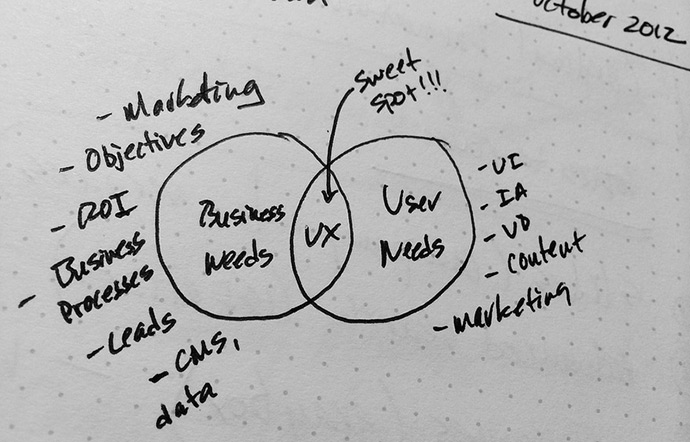 October 2012
sweet
spot!!!
- Marketing
- Objectives
- ROI
- Business
processes
- Leads
- CMS,
data
Business
Needs
UX
User
Needs
- UI
- IA
- VD
- Content
- Marketing